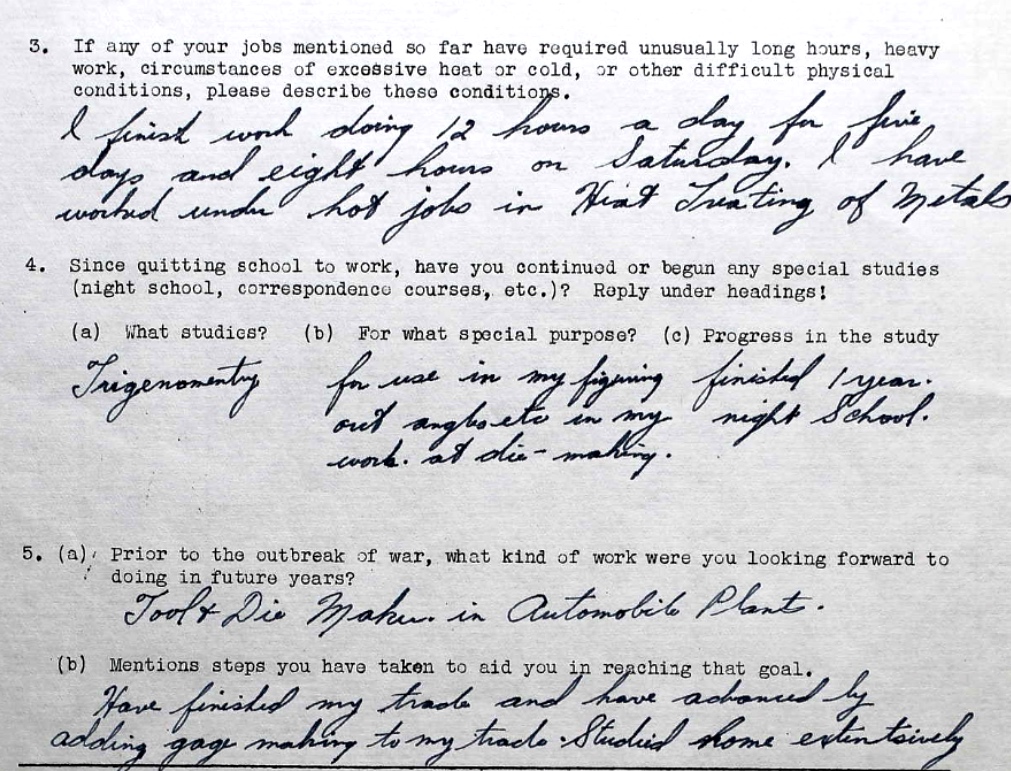 3. If any of your jobs mentioned so far have required unusually long hours, heavy
work, circumstances of excessive heat or cold, or other difficult physical
conditions, please describe these conditions.
I finist work doing 12 hours a day for five
days and eight hours on Saturday. I have
worked under hot jobs in Heat Treating of Metals
4. Since quitting school to work, have you continued or begun any special studies
(night school, correspondence courses, etc.)? Reply under headings!
(a) What studies? (b) For what special purpose? (c) Progress in the study
Trigenomentry for use in my figuring finished 1 year.
out angles etc in my night School.
work. at die-making.
5. (a) Prior to the outbreak of war, what kind of work were you looking forward to
doing in future years?
Tool & Die Maker. in Automobile Plant.
(b) Mentions steps you have taken to aid you in reaching that goal.
Have finished my trade and have advanced by
adding gage making to my trade. Studied some extentsively